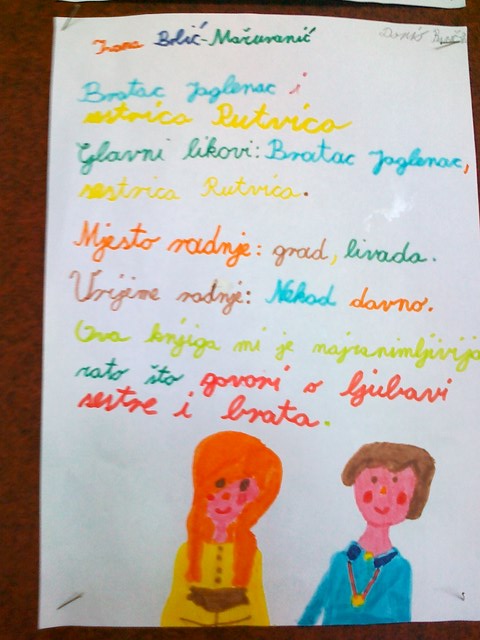 Ivana Brlić-Mažuranić
Bratac Jaglenac i
sestrica Rutvica
Glavni likovi: Bratac Jaglenac,
sestrica Rutvica.
Mjesto radnje: grad, livada.
Vrijeme radnje: Nekad davno.
Ova knjiga mi je najzanimljivija
zato što govori o ljubavi
sestre i brata.